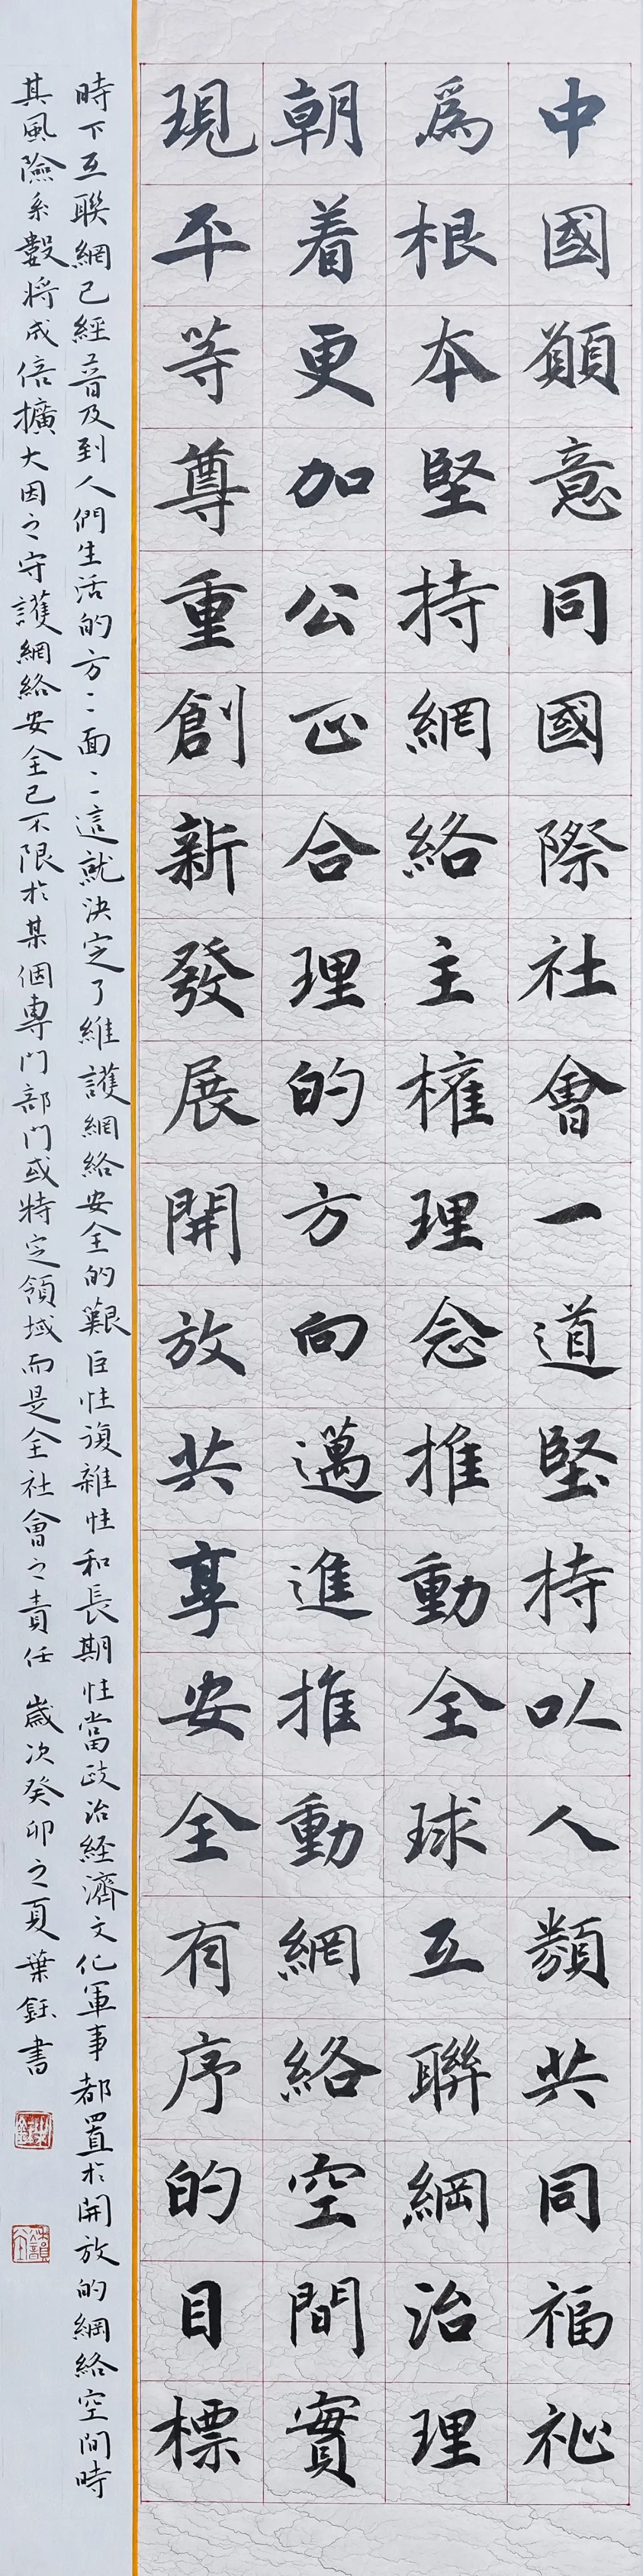 中國願意同國際社會一道堅持以人類共同福祉
為根本堅持網絡主權理念推動全球互聯網治理
朝着更加公正合理的方向邁進推動網絡空間實
現平等尊重創新發展開放共享安全有序的目標
時下互聯網已經普及到人們生活的方方面面這就決定了維護網絡安全的艱巨性複雜性和長期性當政治經濟文化軍事都置於開放的網絡空間時
其風險系數將成倍擴大因之守護網絡安全已不限於某個專門部門或特定領域而是全社會之責任 歲次癸卯之夏葉鈺書